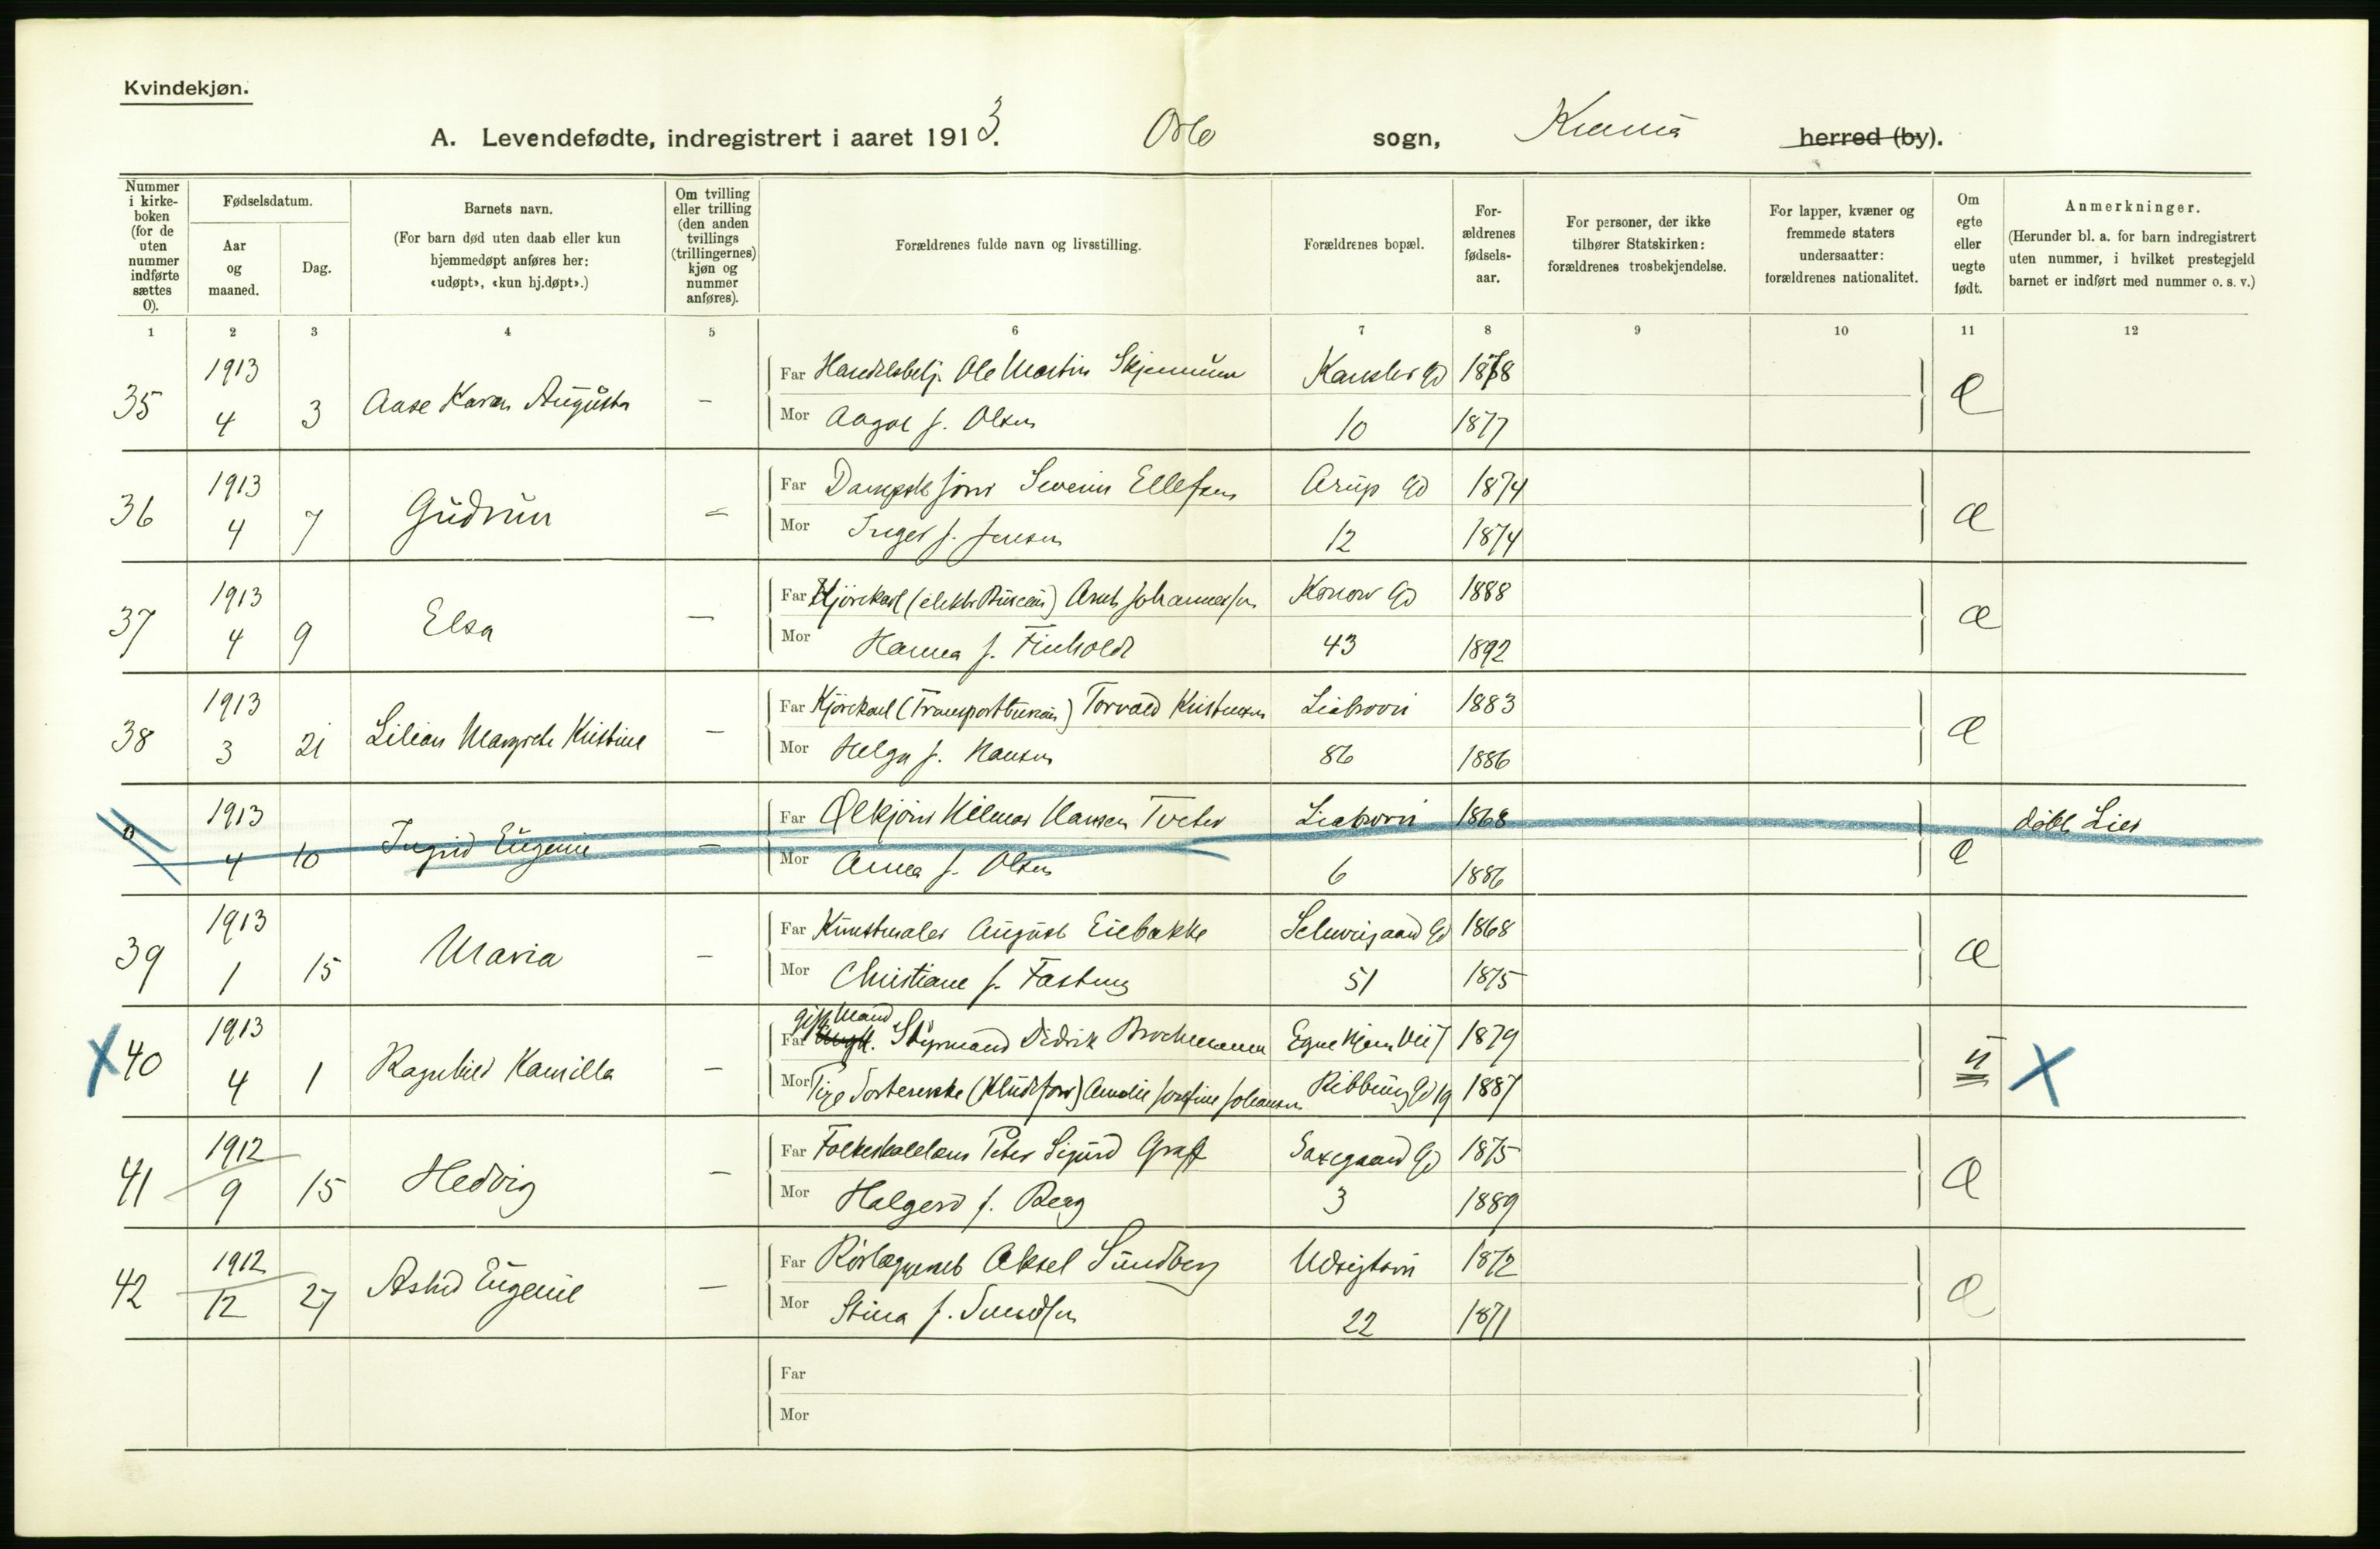 Kvindekjøn.
A. Levendefødte, indregistrert i aaret 1913. Oslo sogn, Kr.ania herred (by).
Nummer i kirke-boken (for de uten nummer indførte sættes 0).
Fødselsdatum.
Aar og maaned.
Dag.
Barnets navn.
(For barn død uten daab eller kun hjemmedøpt anføres her: «udøpt», «kun hj.døpt».)
Om tvilling eller trilling (den anden tvillings (trillingernes) kjøn og nummer anføres).
Forældrenes fulde navn og livsstilling.
Forældrenes bopæl.
For-ældrenes fødsels-aar.
For personer, der ikke tilhører Statskirken: forældrenes trosbekjendelse.
For lapper, kvæner og fremmede staters undersaatter: forældrenes nationalitet.
Om egte eller uegte født.
Anmerkninger.
(Herunder bl. a. for barn indregistrert uten nummer, i hvilket prestegjeld barnet er indført med nummer o. s. v.)
1 2 3 4 5 6 7 8 9 10 11 12
1913 Far Handelsbetj. Ole Martin Skjennum Kansler Gd 1878
35 4 3 Aase Karen Augusta - Æ
Mor Aagot f. Olsen 10 1877
1913 Far Dampsk.fører Severin Ellefsen Arup Gd 1874
36 4 7 Gudrun - Æ
Mor Inger f. Jensen 12 1874
1913 Far Kjørekarl (elektr. Bureau) Arnt Johannessen Konow Gd 1888
37 4 9 Elsa - Æ
Mor Hanna f. Finholdt 43 1892
1913 Far Kjørekarl (Transportbureau) Torvald Kristensen Liabrovei 1883
38 3 21 Lilian Margrete Kristine - Æ
Mor Helga f. Hansen 86 1886
1913 Far Ølkjører Hilmar Hansen Tveter Liabrovei 1868 døbt Lier
0 4 10 Ingrid Eugenie - Æ
Mor Anna f. Olsen 6 1886
1913 Far Kunstmaler August Eiebakke Schweigaard Gd 1868
39 1 15 Maria - Æ
Mor Christiane f. Fasting 51 1875
gift Mand
1913 Far Styrmand Didrik Brochmann Egne Hjem Vei 7 1879
X 40 4 1 Ragnhild Kamilla - u X
Mor Pige Sortererske (Kludefor) Amalie Josefine Johansen Ribbung Gd 19 1887
1912 Far Folkeskolelærer Peter Sigurd Graff Saxegaard Gd 1875
41 9 15 Hedvig - Æ
Mor Halgerd f. Berg 3 1889
1912 Far Rørlæggermest Aksel Sundberg Udsigtsvei 1872
42 12 27 Astrid Eugenie - Æ
Mor Stina f. 22 1871
Far
Mor